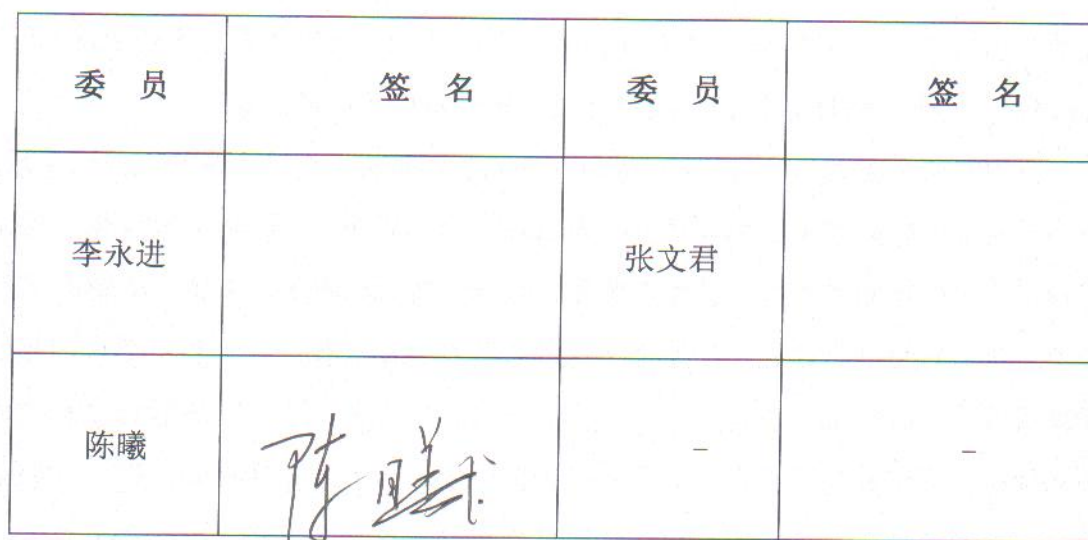 委 员 签 名 委 员 签 名
李永进 张文君
陈曦 陈曦 - -